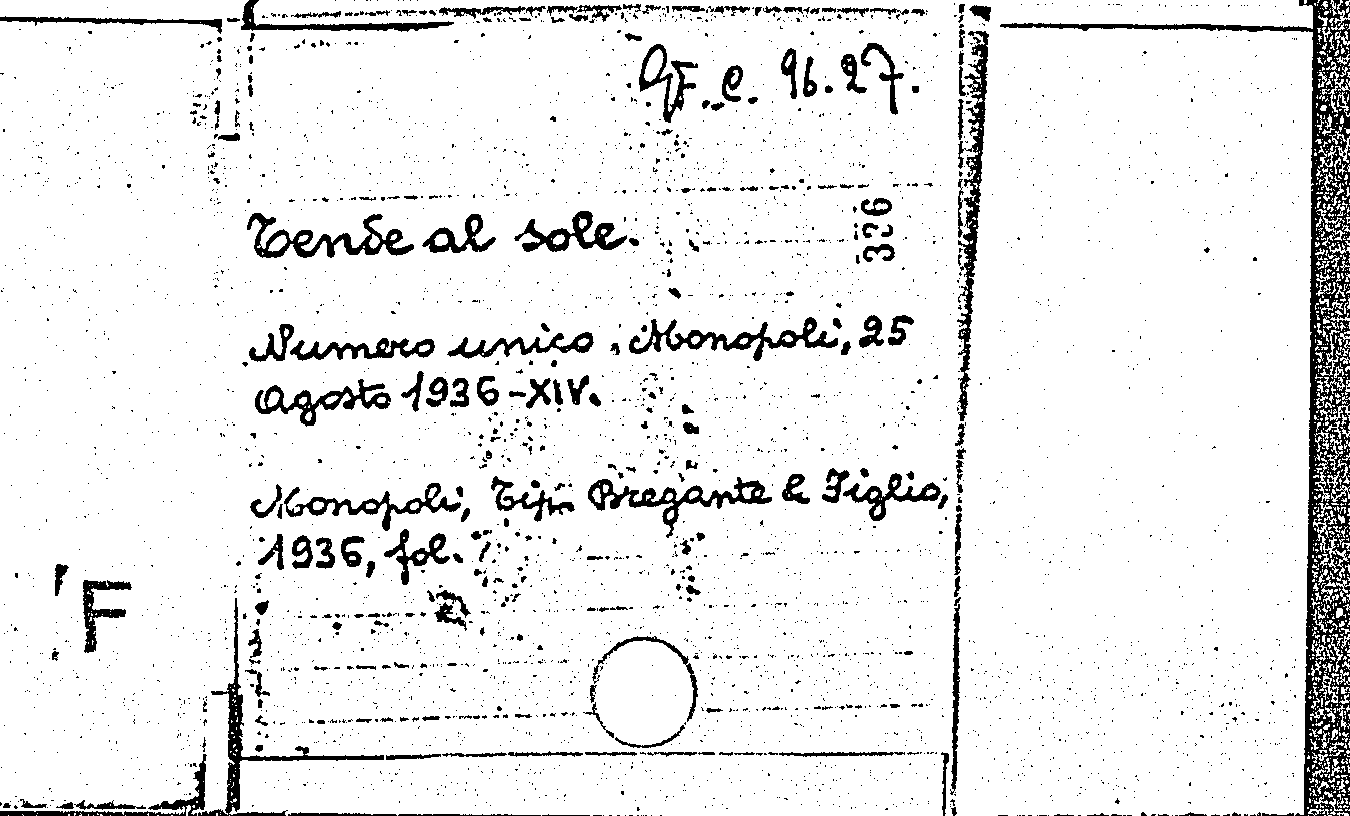 GF. C. 96.27.
Tende al sole.
326
Numero unico. Monopoli, 25
Agosto 1936-XIV.
Monopoli, Tip. Bregante & Figlio,
1936, fol.
F